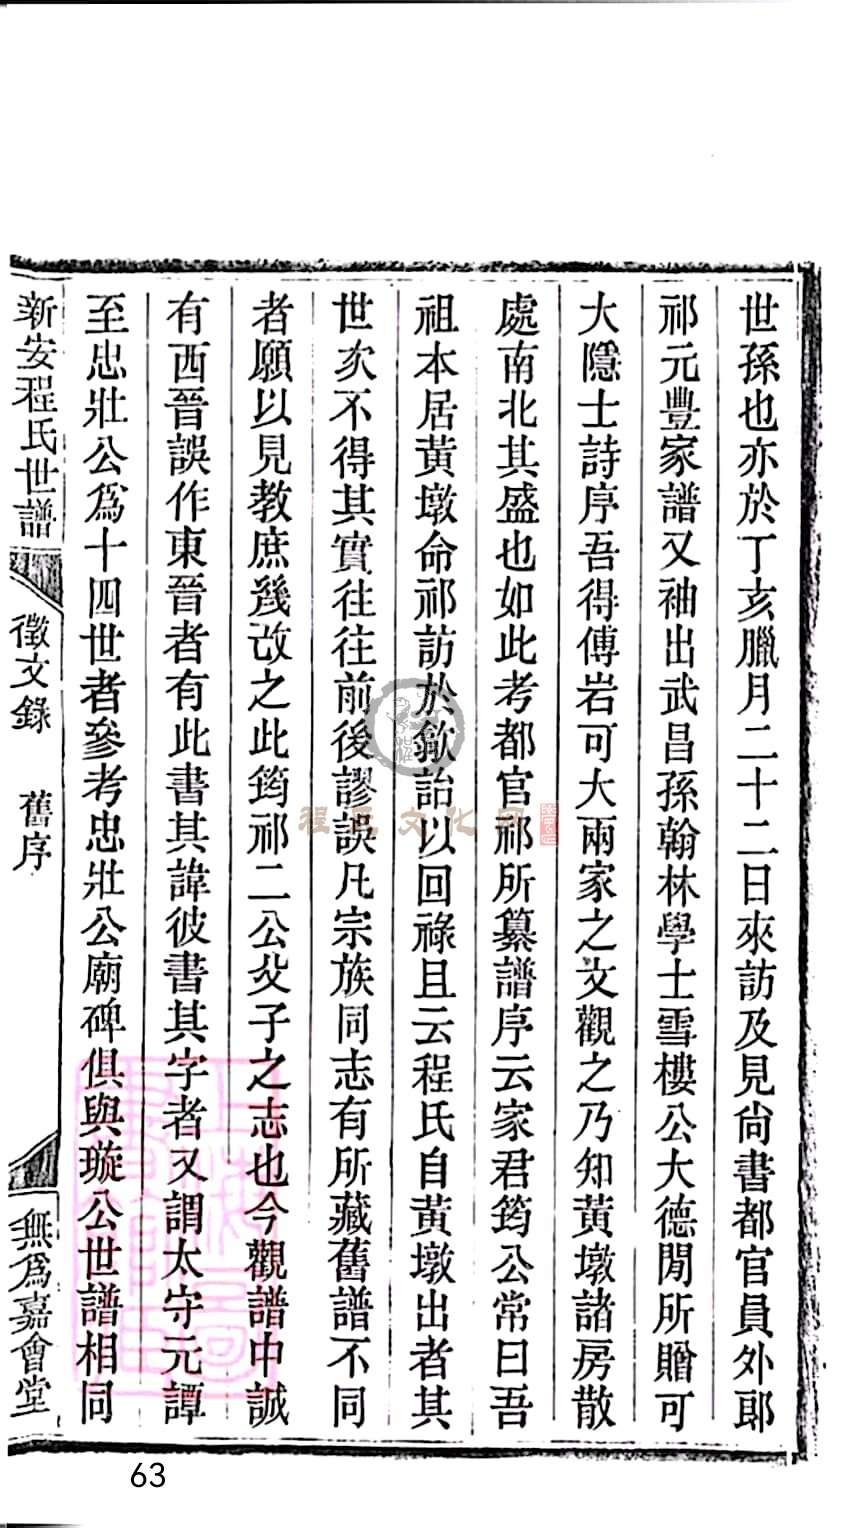 世孫也亦於丁亥臘月二十二日來訪及見尚書都官員外郎
祁元豐家譜又袖出武昌孫翰林學士雪樓公大德閒所贈可
大隱士詩序吾得傅岩可大兩家之文觀之乃知黃墩諸房散
處南北其盛也如此考都官祁所纂譜序云家君筠公常曰吾
祖本居黃墩命祁訪於歙詒以回祿且云程氏自黃墩出者其
世次不得其實往往前後謬誤凡宗族同志有所藏舊譜不同
者願以見教庶幾改之此筠祁二公父子之志也今觀譜中誠
有西晉誤作東晉者有此書其諱彼書其字者又謂太守元譚
至忠壯公爲十四世者參考忠壯公廟碑俱與璇公世譜相同
新安程氏世譜 徵文錄 舊序 無爲嘉會堂
程氏文化网
63